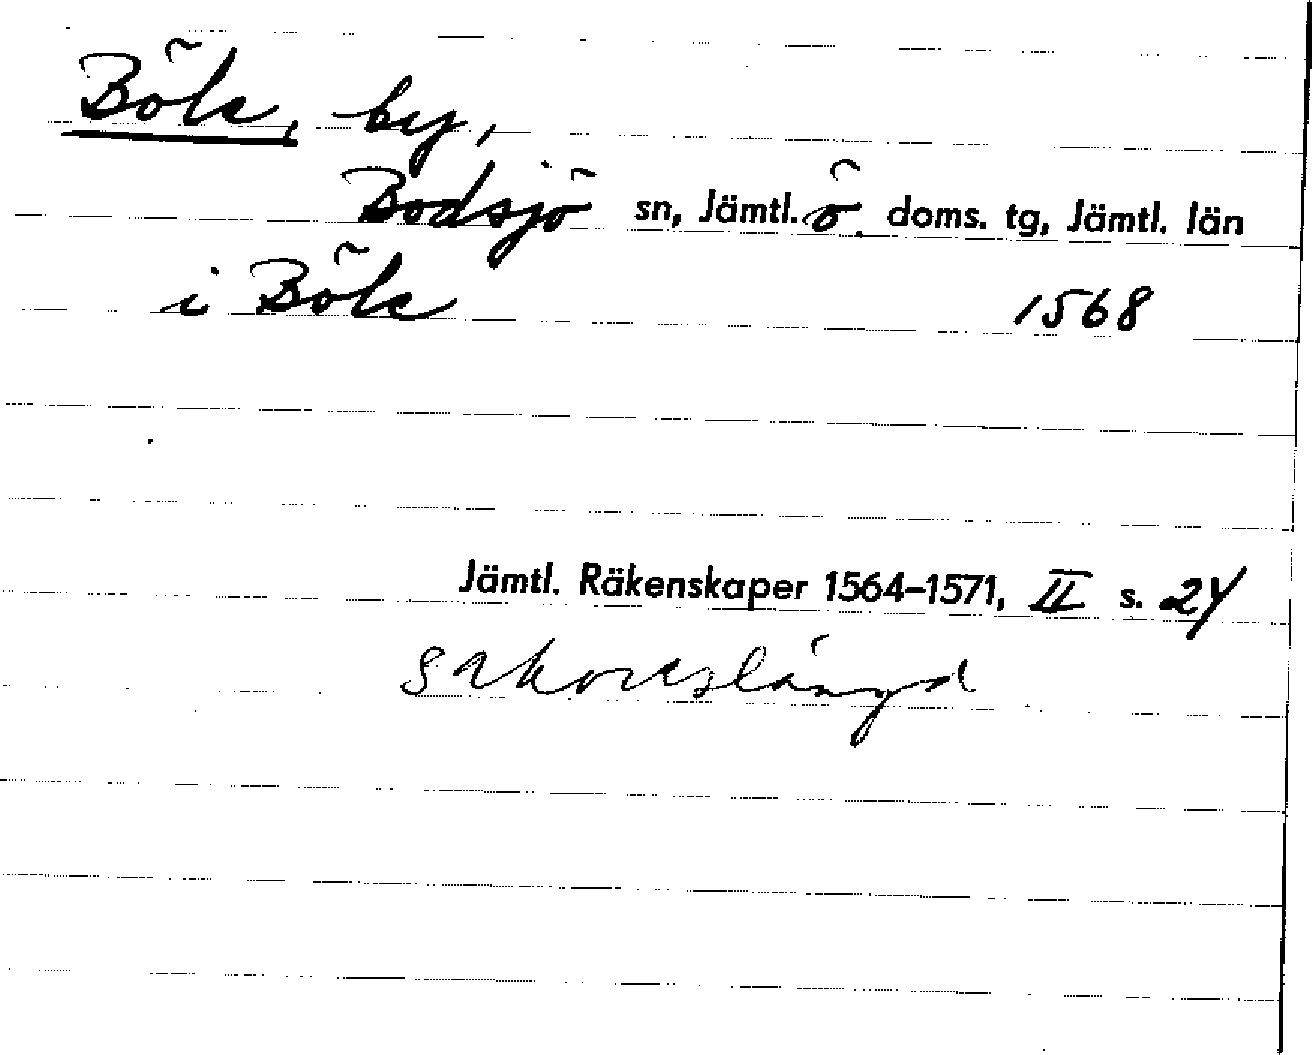 Böle, by,
Bodsjö sn, Jämtl. ö. doms. tg, Jämtl. län
i Böle 1568
Jämtl. Räkenskaper 1564–1571, II s. 24
Sakoreslängd